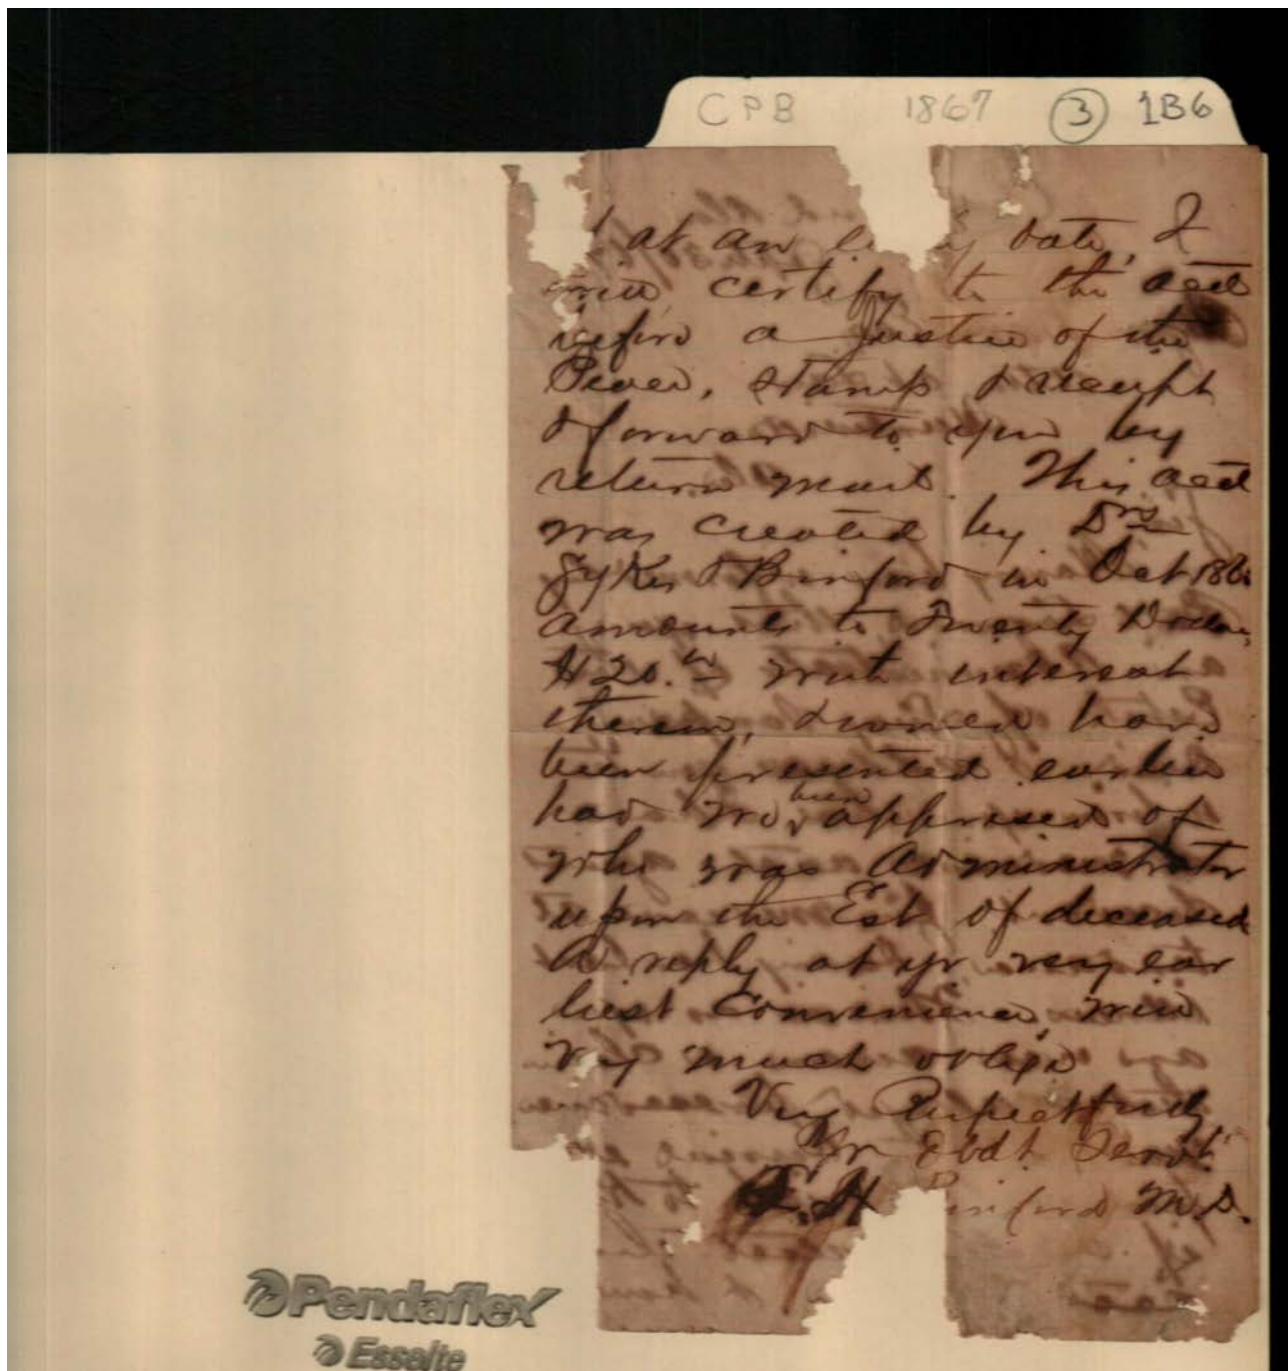 CPB 1867 3 1B6
at an date, I
will certify to the acct
before a Justice of the
Peace, stamp & receipt
& forward to you by
return mail. This acct
was created by Drs
Sykes & Binford in Oct 186
amounts to Twenty Dollars,
$20.00 with interest
thereon, & would have
been presented earlier
had we been apprised of
who was administrator
upon the Est of deceased
A reply at yr very ear
liest convenience, will
very much oblige
Very Respectfully
Yr Obdt Servt
inford M.D.
Pendaflex
Esselte